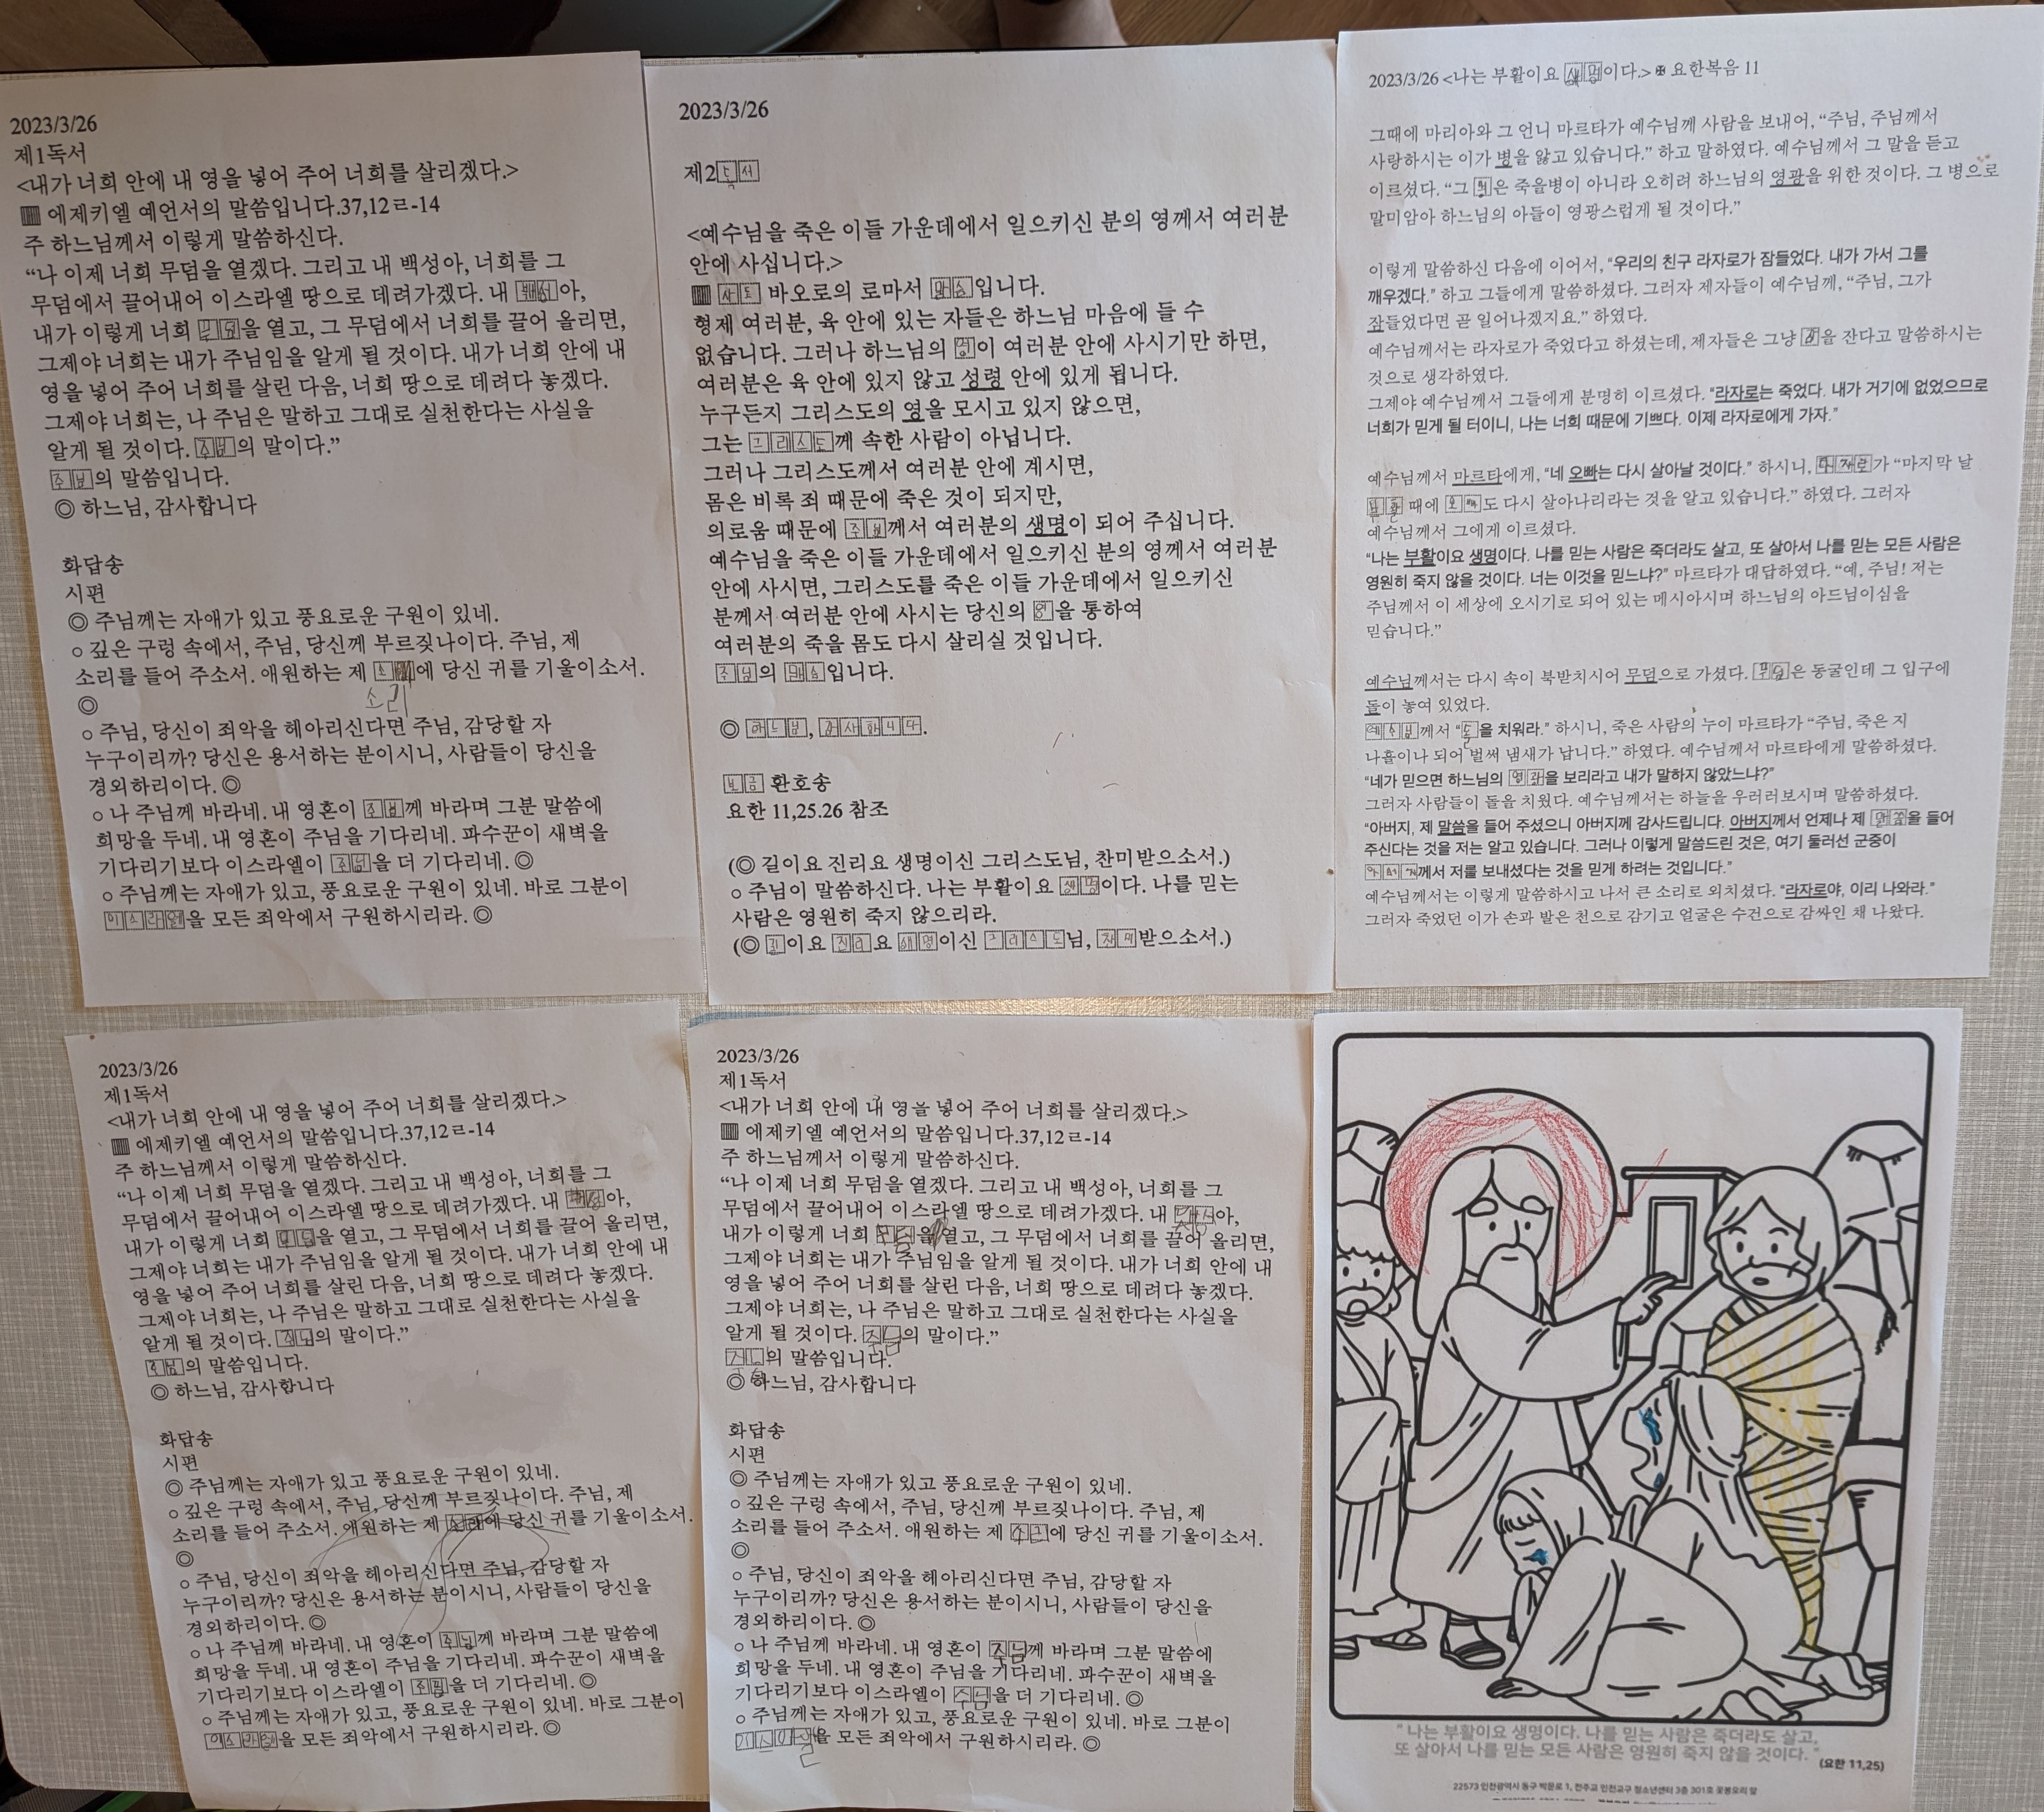 2023/3/26
제1독서
<내가 너희 안에 내 영을 넣어 주어 너희를 살리겠다.>
▥ 에제키엘 예언서의 말씀입니다.37,12ㄹ-14
주 하느님께서 이렇게 말씀하신다.
“나 이제 너희 무덤을 열겠다. 그리고 내 백성아, 너희를 그
무덤에서 끌어내어 이스라엘 땅으로 데려가겠다. 내 백성아,
내가 이렇게 너희 무덤을 열고, 그 무덤에서 너희를 끌어 올리면,
그제야 너희는 내가 주님임을 알게 될 것이다. 내가 너희 안에 내
영을 넣어 주어 너희를 살린 다음, 너희 땅으로 데려다 놓겠다.
그제야 너희는, 나 주님은 말하고 그대로 실천한다는 사실을
알게 될 것이다. 주님의 말이다.”
주님의 말씀입니다.
◎ 하느님, 감사합니다
화답송
시편
◎ 주님께는 자애가 있고 풍요로운 구원이 있네.
○ 깊은 구렁 속에서, 주님, 당신께 부르짖나이다. 주님, 제
소리를 들어 주소서. 애원하는 제 소리에 당신 귀를 기울이소서.
소리
◎
○ 주님, 당신이 죄악을 헤아리신다면 주님, 감당할 자
누구이리까? 당신은 용서하는 분이시니, 사람들이 당신을
경외하리이다. ◎
○ 나 주님께 바라네. 내 영혼이 주님께 바라며 그분 말씀에
희망을 두네. 내 영혼이 주님을 기다리네. 파수꾼이 새벽을
기다리기보다 이스라엘이 주님을 더 기다리네. ◎
○ 주님께는 자애가 있고, 풍요로운 구원이 있네. 바로 그분이
이스라엘을 모든 죄악에서 구원하시리라. ◎
2023/3/26
제2독서
<예수님을 죽은 이들 가운데에서 일으키신 분의 영께서 여러분
안에 사십니다.>
▥ 사도 바오로의 로마서 말씀입니다.
형제 여러분, 육 안에 있는 자들은 하느님 마음에 들 수
없습니다. 그러나 하느님의 영이 여러분 안에 사시기만 하면,
여러분은 육 안에 있지 않고 성령 안에 있게 됩니다.
누구든지 그리스도의 영을 모시고 있지 않으면,
그는 그리스도께 속한 사람이 아닙니다.
그러나 그리스도께서 여러분 안에 계시면,
몸은 비록 죄 때문에 죽은 것이 되지만,
의로움 때문에 주님께서 여러분의 생명이 되어 주십니다.
예수님을 죽은 이들 가운데에서 일으키신 분의 영께서 여러분
안에 사시면, 그리스도를 죽은 이들 가운데에서 일으키신
분께서 여러분 안에 사시는 당신의 영을 통하여
여러분의 죽을 몸도 다시 살리실 것입니다.
주님의 말씀입니다.
◎ 하느님, 감사합니다.
복음 환호송
요한 11,25.26 참조
(◎ 길이요 진리요 생명이신 그리스도님, 찬미받으소서.)
○ 주님이 말씀하신다. 나는 부활이요 생명이다. 나를 믿는
사람은 영원히 죽지 않으리라.
(◎ 길이요 진리요 생명이신 그리스도님, 찬미받으소서.)
2023/3/26 <나는 부활이요 생명이다.> ✠ 요한복음 11
그때에 마리아와 그 언니 마르타가 예수님께 사람을 보내어, “주님, 주님께서
사랑하시는 이가 병을 앓고 있습니다.” 하고 말하였다. 예수님께서 그 말을 듣고
이르셨다. “그 병은 죽을병이 아니라 오히려 하느님의 영광을 위한 것이다. 그 병으로
말미암아 하느님의 아들이 영광스럽게 될 것이다.”
이렇게 말씀하신 다음에 이어서, “우리의 친구 라자로가 잠들었다. 내가 가서 그를
깨우겠다.” 하고 그들에게 말씀하셨다. 그러자 제자들이 예수님께, “주님, 그가
잠들었다면 곧 일어나겠지요.” 하였다.
예수님께서는 라자로가 죽었다고 하셨는데, 제자들은 그냥 잠을 잔다고 말씀하시는
것으로 생각하였다.
그제야 예수님께서 그들에게 분명히 이르셨다. “라자로는 죽었다. 내가 거기에 없었으므로
너희가 믿게 될 터이니, 나는 너희 때문에 기쁘다. 이제 라자로에게 가자.”
예수님께서 마르타에게, “네 오빠는 다시 살아날 것이다.” 하시니, 가 “마지막 날
부활 때에 오빠도 다시 살아나리라는 것을 알고 있습니다.” 하였다. 그러자
예수님께서 그에게 이르셨다.
“나는 부활이요 생명이다. 나를 믿는 사람은 죽더라도 살고, 또 살아서 나를 믿는 모든 사람은
영원히 죽지 않을 것이다. 너는 이것을 믿느냐?” 마르타가 대답하였다. “예, 주님! 저는
주님께서 이 세상에 오시기로 되어 있는 메시아시며 하느님의 아드님이심을
믿습니다.”
예수님께서는 다시 속이 북받치시어 무덤으로 가셨다. 무덤은 동굴인데 그 입구에
돌이 놓여 있었다.
예수님께서 “돌을 치워라.” 하시니, 죽은 사람의 누이 마르타가 “주님, 죽은 지
나흘이나 되어 벌써 냄새가 납니다.” 하였다. 예수님께서 마르타에게 말씀하셨다.
“네가 믿으면 하느님의 영광을 보리라고 내가 말하지 않았느냐?”
그러자 사람들이 돌을 치웠다. 예수님께서는 하늘을 우러러보시며 말씀하셨다.
“아버지, 제 말씀을 들어 주셨으니 아버지께 감사드립니다. 아버지께서 언제나 제 말씀을 들어
주신다는 것을 저는 알고 있습니다. 그러나 이렇게 말씀드린 것은, 여기 둘러선 군중이
아버지께서 저를 보내셨다는 것을 믿게 하려는 것입니다.”
예수님께서는 이렇게 말씀하시고 나서 큰 소리로 외치셨다. “라자로야, 이리 나와라.”
그러자 죽었던 이가 손과 발은 천으로 감기고 얼굴은 수건으로 감싸인 채 나왔다.
2023/3/26
제1독서
<내가 너희 안에 내 영을 넣어 주어 너희를 살리겠다.>
▥ 에제키엘 예언서의 말씀입니다.37,12ㄹ-14
주 하느님께서 이렇게 말씀하신다.
“나 이제 너희 무덤을 열겠다. 그리고 내 백성아, 너희를 그
무덤에서 끌어내어 이스라엘 땅으로 데려가겠다. 내 백성아,
내가 이렇게 너희 무덤을 열고, 그 무덤에서 너희를 끌어 올리면,
그제야 너희는 내가 주님임을 알게 될 것이다. 내가 너희 안에 내
영을 넣어 주어 너희를 살린 다음, 너희 땅으로 데려다 놓겠다.
그제야 너희는, 나 주님은 말하고 그대로 실천한다는 사실을
알게 될 것이다. 주님의 말이다.”
주님의 말씀입니다.
◎ 하느님, 감사합니다
화답송
시편
◎ 주님께는 자애가 있고 풍요로운 구원이 있네.
○ 깊은 구렁 속에서, 주님, 당신께 부르짖나이다. 주님, 제
소리를 들어 주소서. 애원하는 제 소리에 당신 귀를 기울이소서.
◎
○ 주님, 당신이 죄악을 헤아리신다면 주님, 감당할 자
누구이리까? 당신은 용서하는 분이시니, 사람들이 당신을
경외하리이다. ◎
○ 나 주님께 바라네. 내 영혼이 주님께 바라며 그분 말씀에
희망을 두네. 내 영혼이 주님을 기다리네. 파수꾼이 새벽을
기다리기보다 이스라엘이 주님을 더 기다리네. ◎
○ 주님께는 자애가 있고, 풍요로운 구원이 있네. 바로 그분이
이스라엘을 모든 죄악에서 구원하시리라. ◎
2023/3/26
제1독서
<내가 너희 안에 내 영을 넣어 주어 너희를 살리겠다.>
▥ 에제키엘 예언서의 말씀입니다.37,12ㄹ-14
주 하느님께서 이렇게 말씀하신다.
“나 이제 너희 무덤을 열겠다. 그리고 내 백성아, 너희를 그
무덤에서 끌어내어 이스라엘 땅으로 데려가겠다. 내 백성아,
내가 이렇게 너희 무덤을 열고, 그 무덤에서 너희를 끌어 올리면,
그제야 너희는 내가 주님임을 알게 될 것이다. 내가 너희 안에 내
영을 넣어 주어 너희를 살린 다음, 너희 땅으로 데려다 놓겠다.
그제야 너희는, 나 주님은 말하고 그대로 실천한다는 사실을
알게 될 것이다. 주님의 말이다.”
주님의 말씀입니다.
◎ 하느님, 감사합니다
화답송
시편
◎ 주님께는 자애가 있고 풍요로운 구원이 있네.
○ 깊은 구렁 속에서, 주님, 당신께 부르짖나이다. 주님, 제
소리를 들어 주소서. 애원하는 제 에 당신 귀를 기울이소서.
◎
○ 주님, 당신이 죄악을 헤아리신다면 주님, 감당할 자
누구이리까? 당신은 용서하는 분이시니, 사람들이 당신을
경외하리이다. ◎
○ 나 주님께 바라네. 내 영혼이 주님께 바라며 그분 말씀에
희망을 두네. 내 영혼이 주님을 기다리네. 파수꾼이 새벽을
기다리기보다 이스라엘이 주님을 더 기다리네. ◎
○ 주님께는 자애가 있고, 풍요로운 구원이 있네. 바로 그분이
을 모든 죄악에서 구원하시리라. ◎
“나는 부활이요 생명이다. 나를 믿는 사람은 죽더라도 살고,
또 살아서 나를 믿는 모든 사람은 영원히 죽지 않을 것이다.”
(요한 11,25)
22573 인천광역시 동구 박문로 1, 천주교 인천교구 청소년센터 3층 301호 꽃봉오리 앞